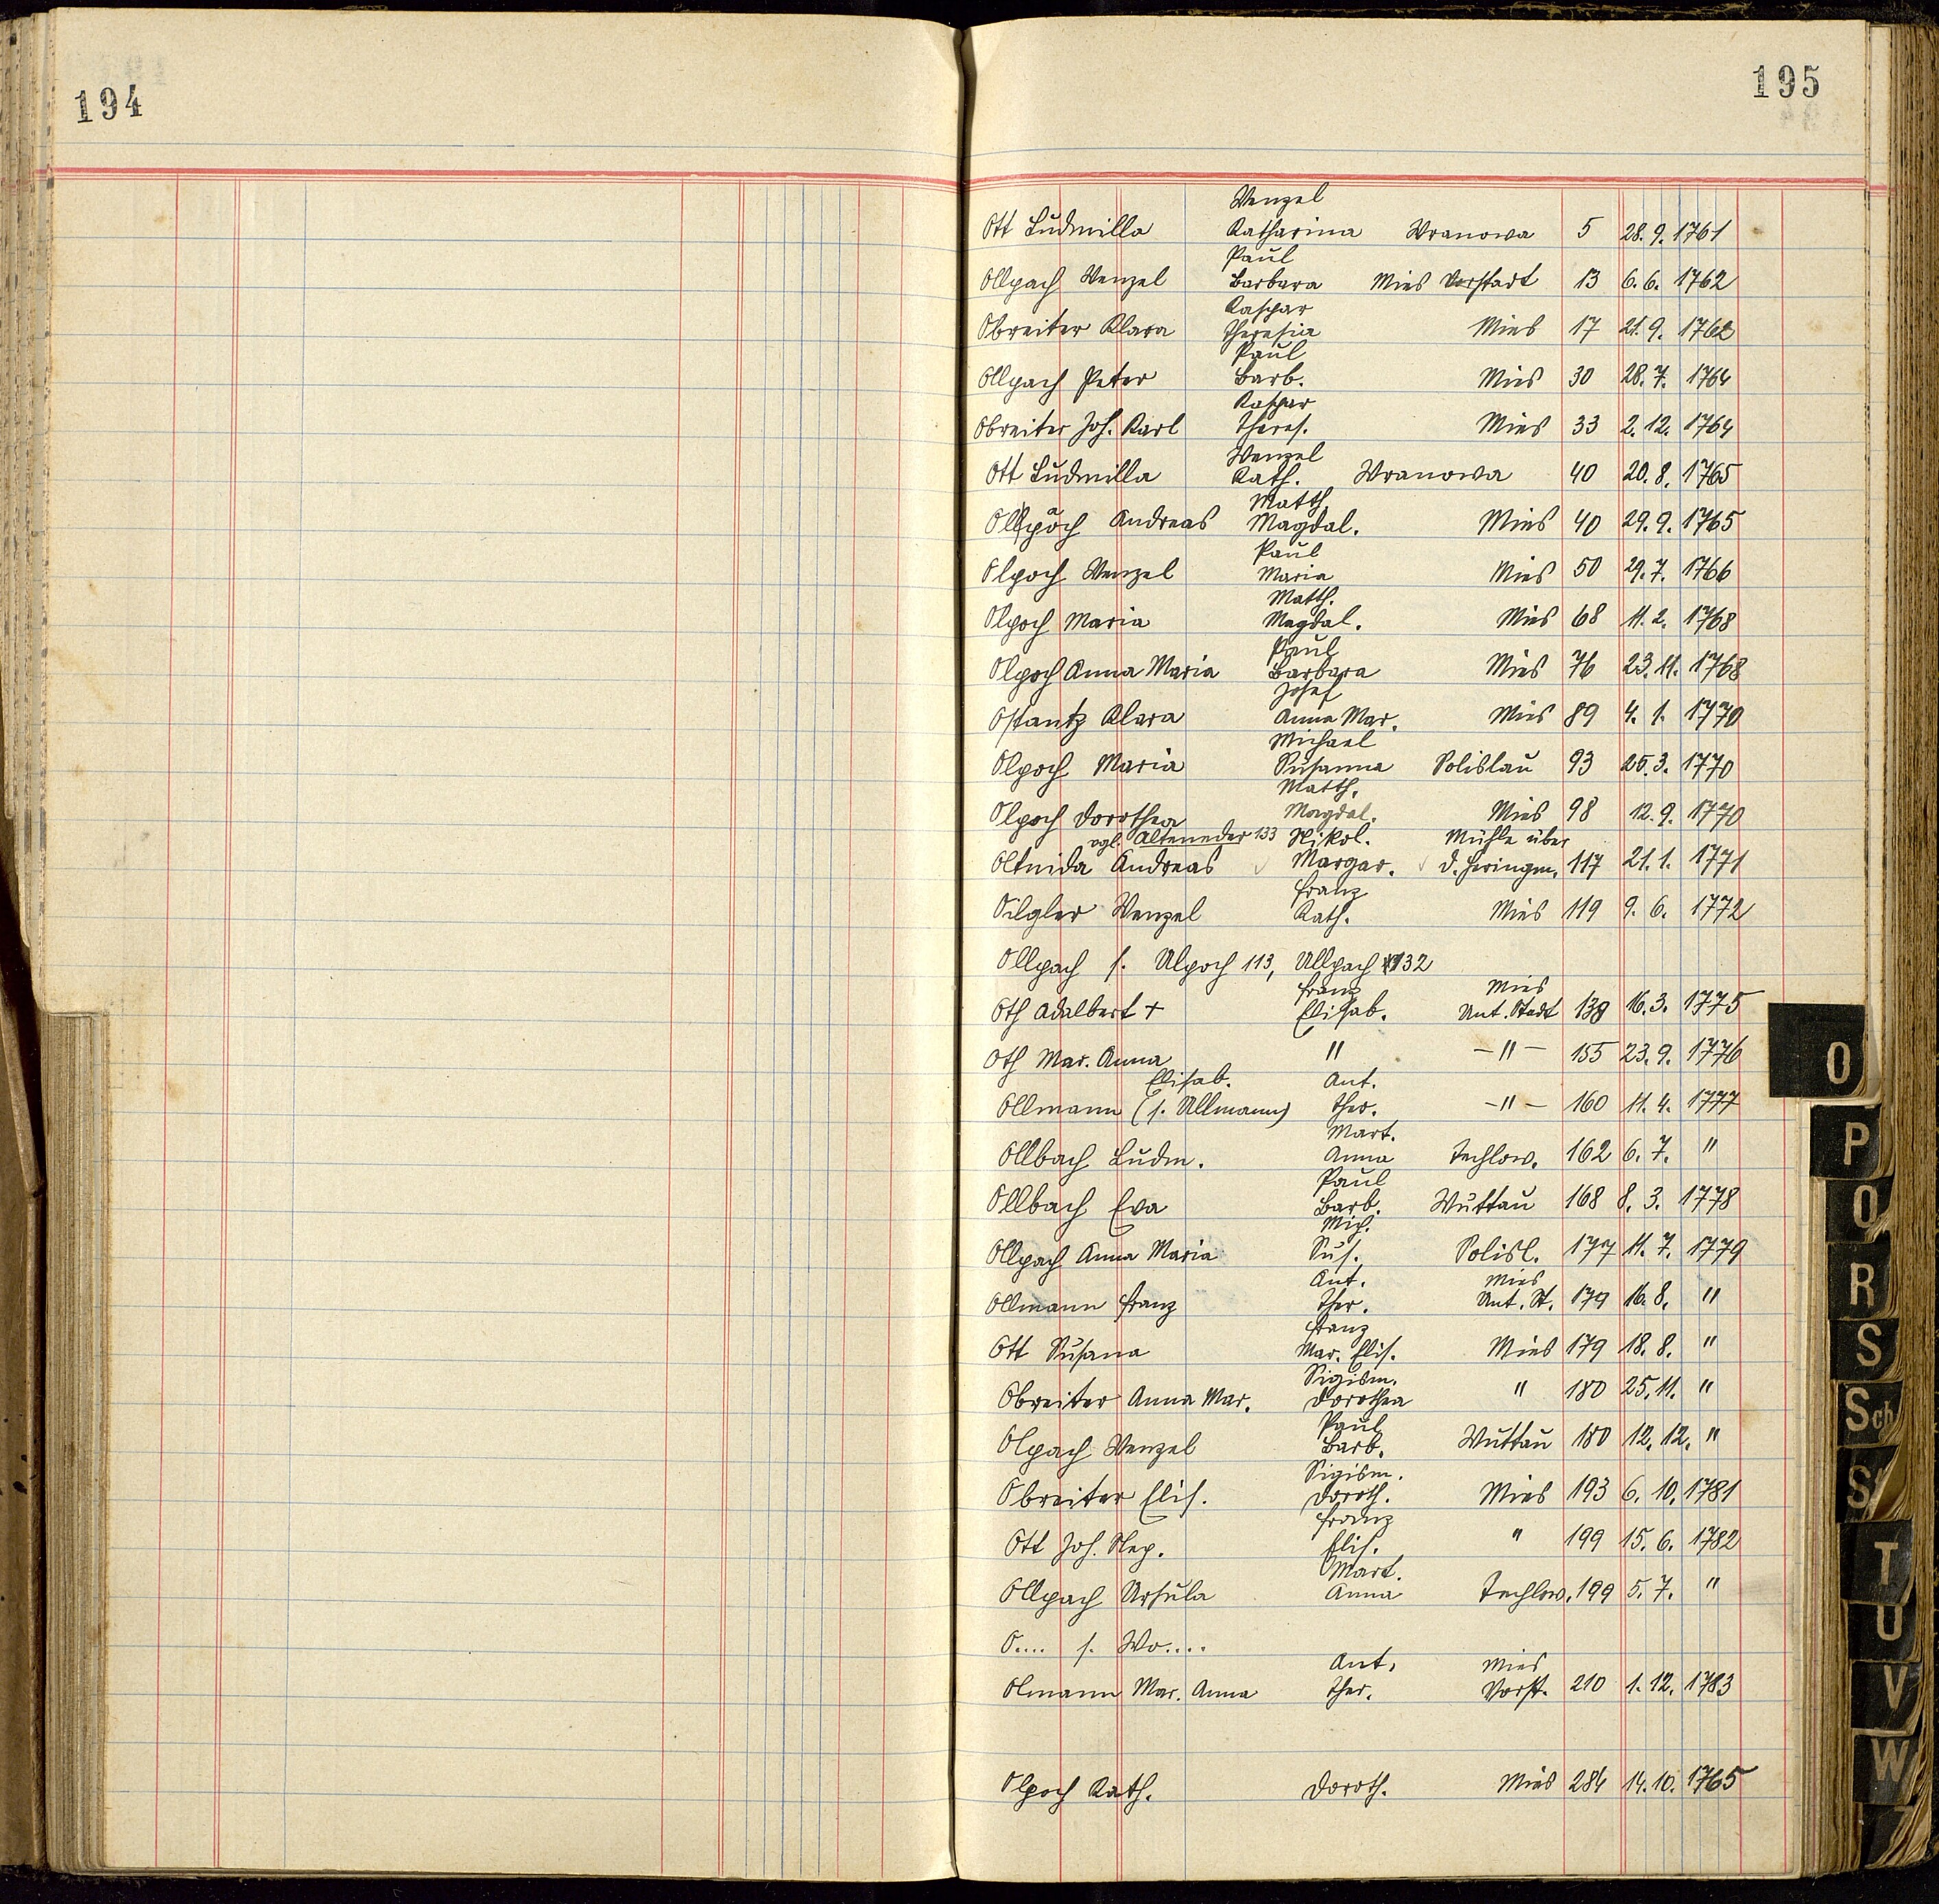 194
195
Wenzel
Ott Ludmilla Katharina Wranowa 5 28. 9. 1761
Paul
Ollpach Wenzel Barbara Mies Vorstadt 13 6. 6. 1762
Kaspar
Obreiter Klara Theresia Mies 17 21. 9. 1762
Paul
Ollpach Peter Barb. Mies 30 28. 7. 1764
Kaspar
Obreiter Joh. Karl Theres. Mies 33 2. 12. 1764
Wenzel
Ott Ludmilla Kath. Wranowa 40 20. 8. 1765
Matth.
Andreas Magdal. Mies 40 29. 9. 1765
Paul
Olpoch Wenzel Maria Mies 50 29. 7. 1766
Matth.
Olpoch Maria Magdal. Mies 68 11. 2. 1768
Paul
Olpoch Anna Maria Barbara Mies 76 23. 11. 1768
Josef
Ostantz Klara Anna Mar. Mies 89 4. 1. 1770
Michael
Olpoch Maria Susanna Solislau 93 25. 3. 1770
Matth.
Olpoch Dorothea Magdal. Mies 98 12. 9. 1770
vgl. Alteneder 133 Nikol. Mühle über
Oltnida Andreas Margar. d. 117 21. 1. 1771
Franz
Oilgler Wenzel Kath. Mies 119 9. 6. 1772
Ollpach s. Ulpoch 113, Ullpach 132
Franz Mies
Oth Adalbert + Elisab. Unt. Stadt 138 16. 3. 1775
Oth Mar. Anna " — " — 155 23. 9. 1776
Elisab. Ant.
Ollmann (s. Ullmann) Ther. — " — 160 11. 4. 1777
Mart.
Ollbach Ludm. Anna Techlow. 162 6. 7. "
Paul
Ollbach Eva Barb. Wuttau 168 8. 3. 1778
Mich.
Ollpach Anna Maria Sus. Solisl. 177 11. 7. 1779
Ant. Mies
Ollmann Franz Ther. Unt. St. 179 16. 8. "
Franz
Ott Susana Mar. Elis. Mies 179 18. 8. "
Sigism.
Obreiter Anna Mar. Dorothea " 180 25. 11. "
Paul
Olpach Wenzel Barb. Wuttau 180 12. 12. "
Sigism.
Obreiter Elis. Doroth. Mies 193 6. 10. 1781
Franz
Ott Joh. Nep. Elis. " 199 15. 6. 1782
Mart.
Ollpach Ursula Anna Techlow. 199 5. 7. "
O.... s. Wo....
Ant. Mies
Olmann Mar. Anna Ther. Vorst. 210 1. 12. 1783
Olpoch Kath. Doroth. Mies 284 14. 10. 1765
O
P
Q
R
S
Sch
St
T
U
V
W